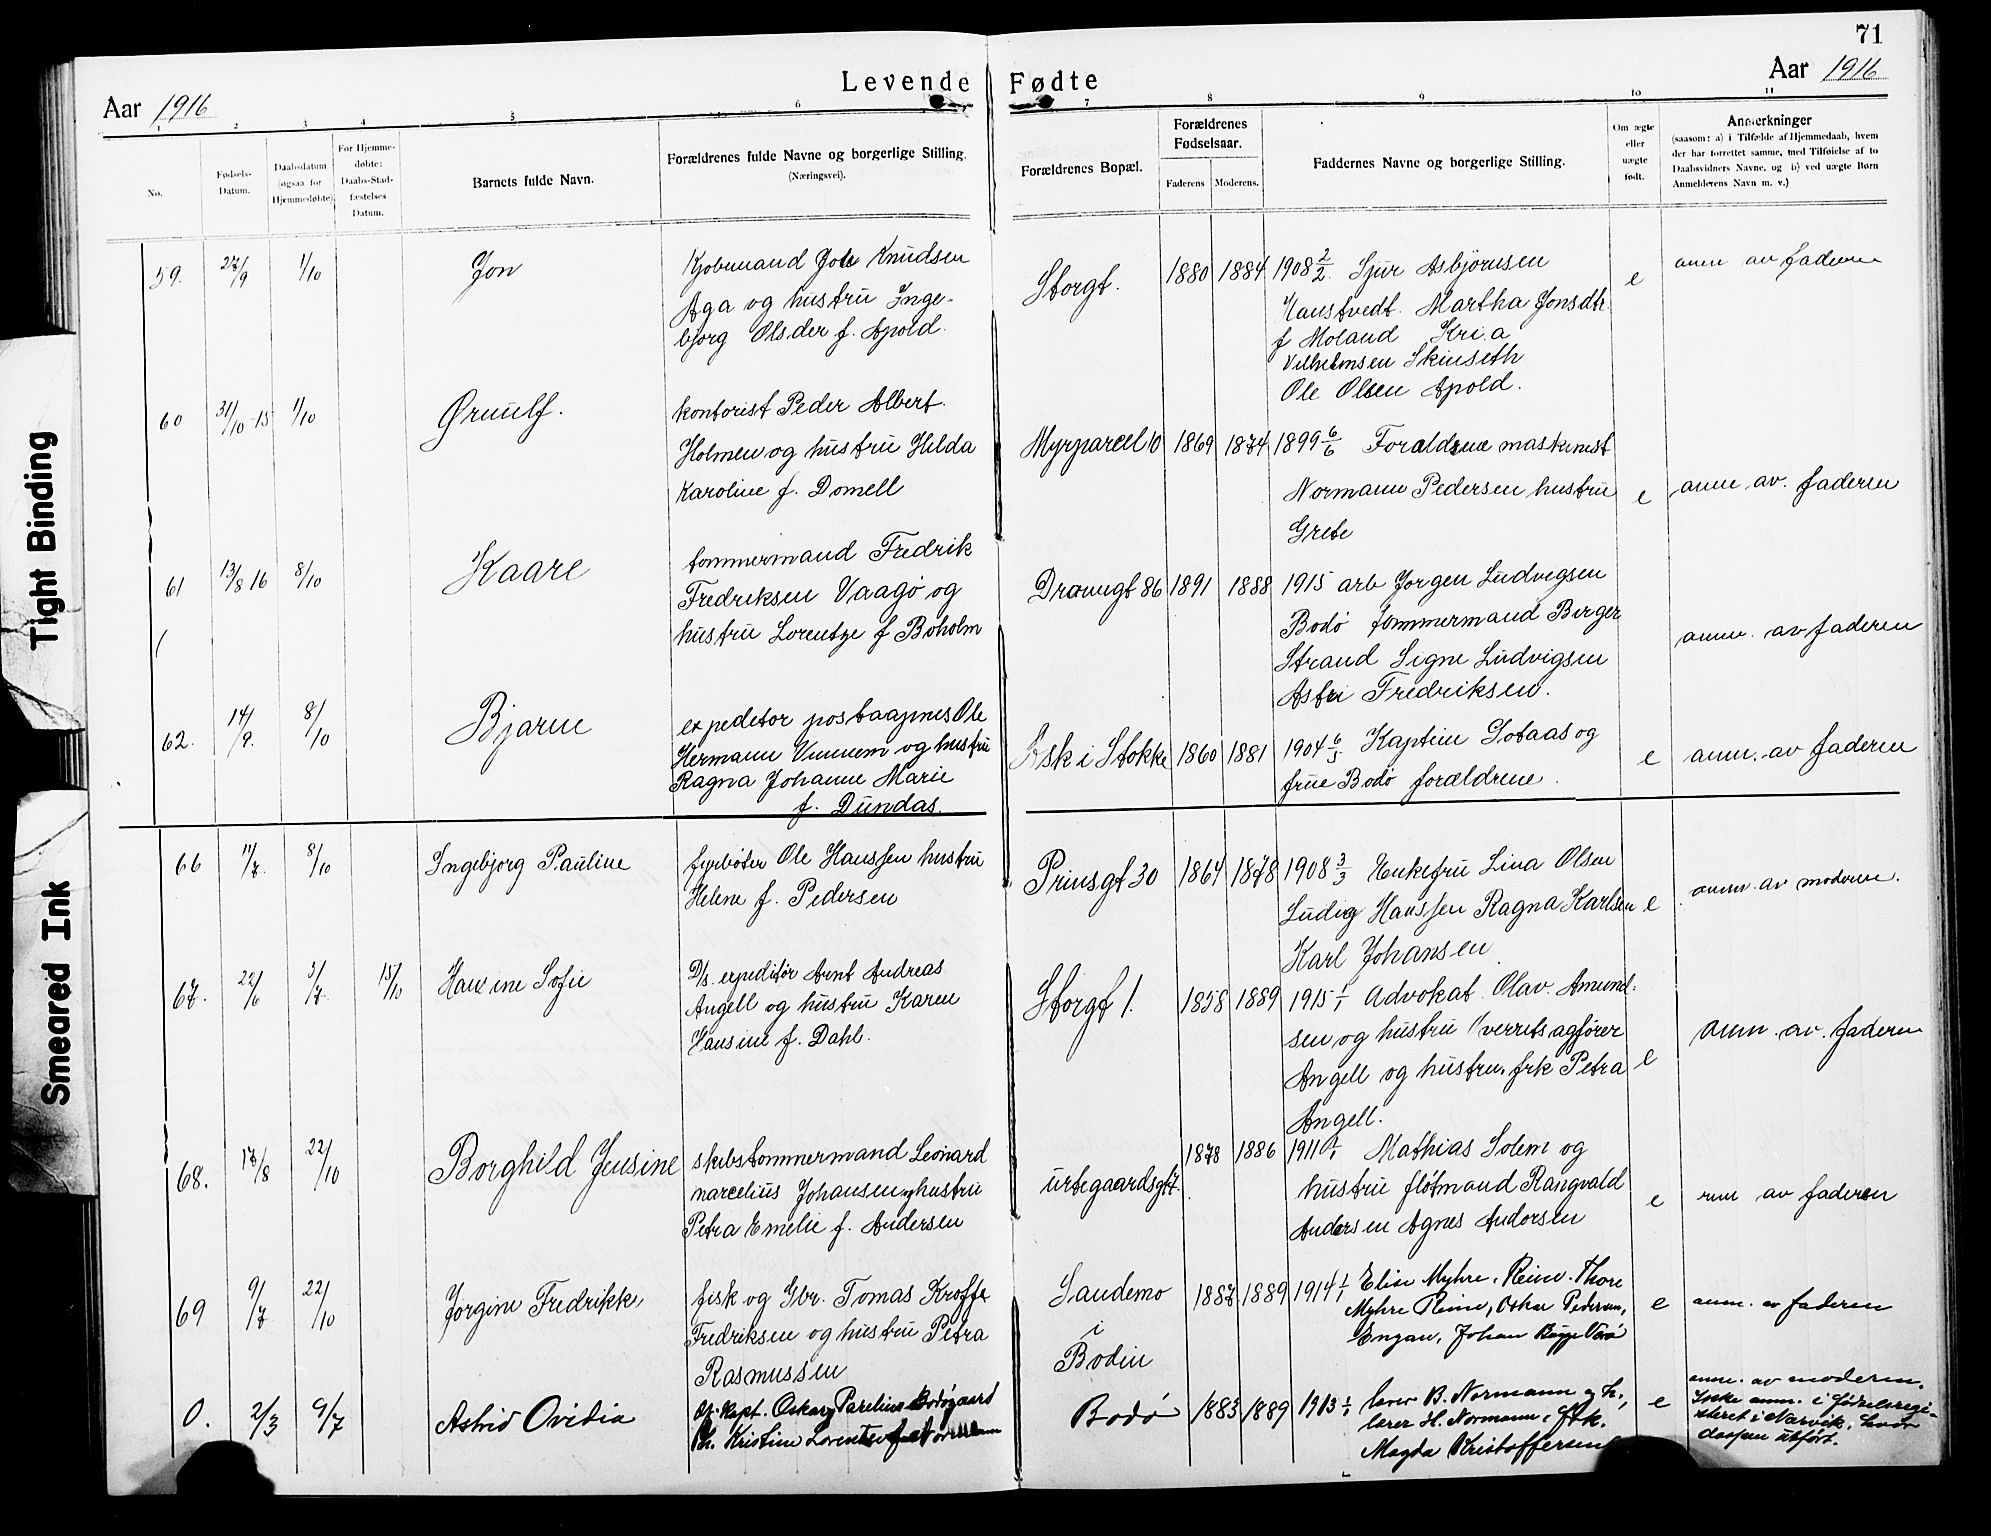 71
Levende Fødte
Aar 1916
Aar 1916
1 2 3 4 5 6 7 8 9 10 11
No.
Fødsels-
Datum.
Daabsdatum
(ogsaa for
Hjemmedøbte)
For Hjemme-
døbte:
Daabs-Stad-
fæstelses
Datum.
Barnets fulde Navn.
Forældrenes fulde Navne og borgerlige Stilling.
(Næringsvei).
Forældrenes Bopæl.
Forældrenes
Fødselsaar.
Faderens Moderens.
Faddernes Navne og borgerlige Stilling.
Om ægte
eller
uægte
født.
Anmerkninger
(saasom: a) i Tilfælde af Hjemmedaab, hvem
der har forrettet samme, med Tilføielse af to
Daabsvidners Navne, og b) ved uægte Børn
Anmelderens Navn m. v.)
59. 27/9 1/10 Jon
Kjøbmand Jole Knudsen
Aga og hustru Inge-
bjorg Olsder f. Apold.
Storgt. 1880 1884
1908 2/2 Sjur Asbjörnsen
Haustvedt. Martha Jonsdtr.
f Moland Kri.a
Vilhelmsen Skinseth
Ole Olsen Apold.
e
anm av faderen
60 31/10-15 1/10 Ørnulf.
kontorist Peder Albert
Holmen og hustru Hilda
Karoline f. Domell
Myrparcel 10 1869 1874
1899 6/6 Foraldrene maskinist
Normann Pedersen hustru
Grete
e
anm av. faderen
61 13/8 16 8/10 Kaare
tommermand Fredrik
Fredriksen Vaagø og
hustru Lorentze f Boholm
Dronnigt 86 1891 1888
1915 arb Jorgen Ludvigsen
Bodø tommermand Birger
Strand Signe Ludvigsen
Astri Fredriksen.
anm. av faderen
62. 14/9. 8/10 Bjarne
expeditor postaapnes Ole
Hermann Vinnem og hustru
Ragna Johanne Marie
f. Dundas.
Ask i Stokke 1860 1881
1904 6/5 Kaptein Sotaas og
frue Bodø forældrene.
e
anm. av faderen
66 11/7. 8/10 Ingebjorg Pauline
fyrbøter Ole Hanssen hustru
Helene f. Pedersen
Prinsgt 30 1864 1878
1908 3/3 Enkefru Lina Olsen
Ludvig Hanssen Ragna Karlsen
Karl Johansen
e
anm. av moderen.
67. 22/6 3/7 15/10 Hansine Sofie
D/s. expeditør Arnt Andreas
Angell og hustru Karen
Hansine f. Dahl.
Storgt 1. 1858 1889
1915 1/1 Advokat Olav Amund-
sen og hustru Overretssagfører
Angell og hustru, frk Petra
Angell.
e
anm. av. faderen
68. 17/8 22/10 Borghild Jensine
skibstommermand Leonard
narcelius Johansen og hustru
Petra Emelie f. Andersen
urtegaardsgt 7. 1878 1886
1911 1/1 Mathias Solem og
hustru fløtmand Rangvald
Andersen Agnes Andorsen
e
anm av faderen
69 9/7 22/10 Jørgine Fredrikke
fisk og Gbr. Tomas Kroffe
Fredriksen og hustru Petra
Rasmussen
Sandemo
i
Bodin
1887 1889
1914 1/1 Elise Myhre, Reine. Thore
Myhre Reine, Oskar Pedersen,
Engan, Johan Bugge Værø
e
anm. av faderen
0. 2/3 9/7 Astrid Ovidia
Kapt. Oskar Parelius Bodøgaard
Kristine Lorentse f. Normann
Bodø 1883 1889
1913 1/1 lærer B. Normann og h.,
lærer H. Normann, Frk.
Magda Kristoffersen
e
anm. av moderen.
Ikke anm. i fødselsregi-
steret i Narvik, hvor
daapen utført.
Tight Binding
Smeared Ink